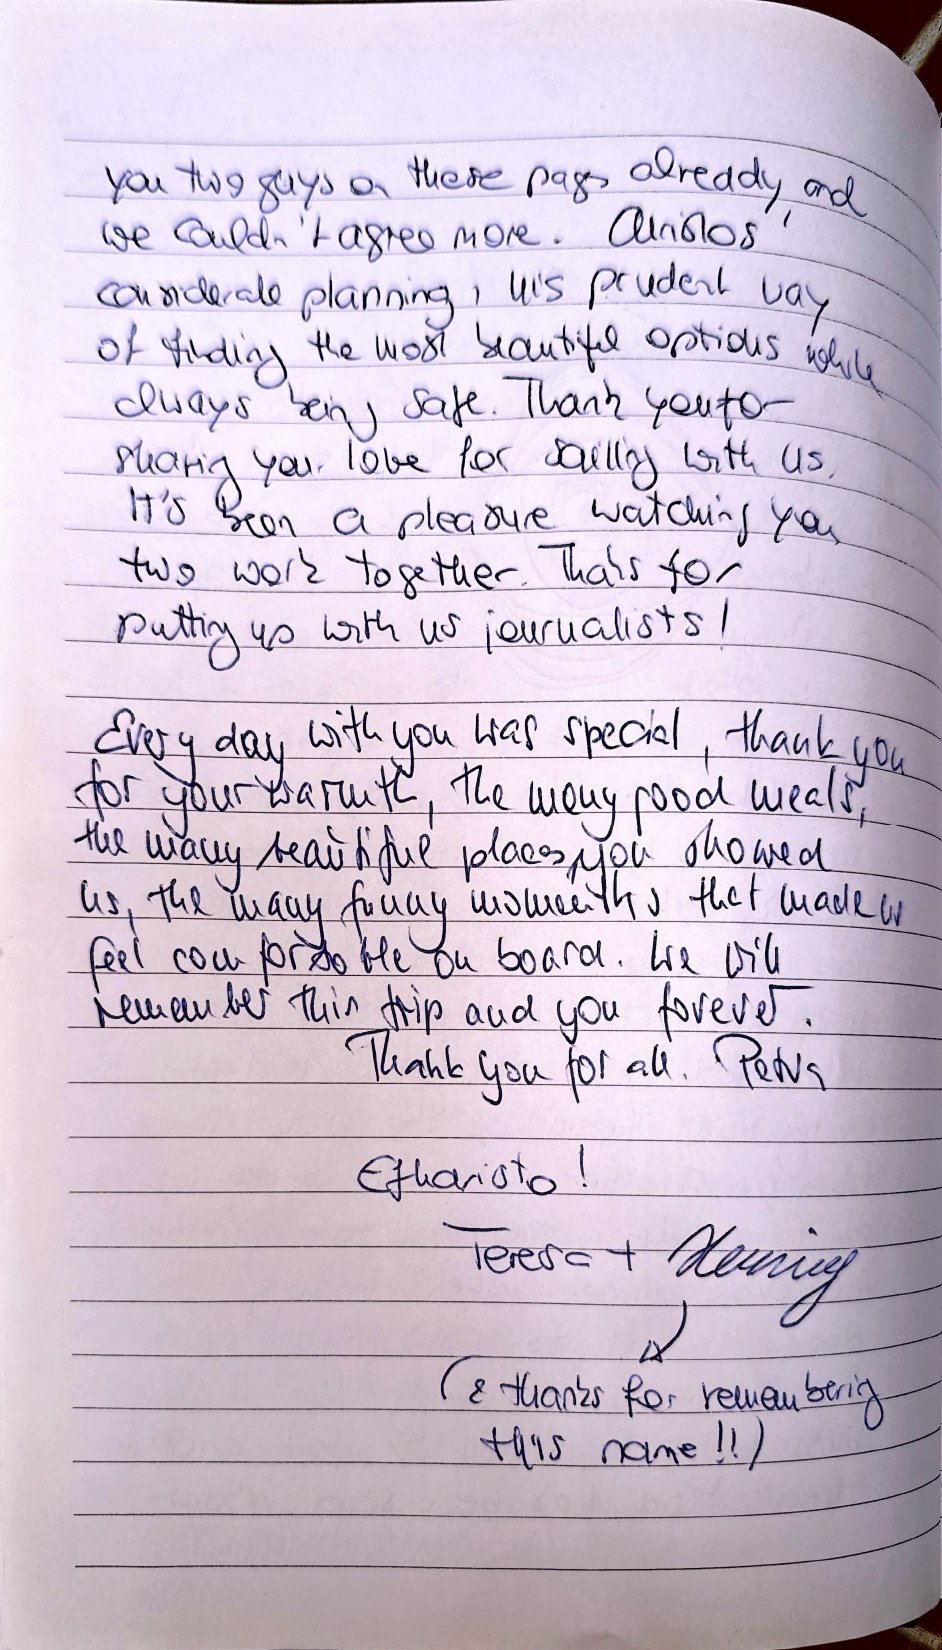 you two guys on these pages alreaddy, and
we couldn't agree more. Christos'
considerate planning, his prudent way
of finding the most beautiful options while
always being safe. Thank you for
sharing your love for sailing with us.
It's been a pleasure watching you
two work together. Thanks for
putting up with us journalists!
Every day with you was special, thank you
for your warmth, the many good meals,
the many beautiful places, you showed
us, the many funny moments that made us
feel comfortable on board. We will
remember this trip and you forever.
Thank you for all. Petra
Efharisto!
Teresa + Henning
(& thanks for remembering
this name!!)